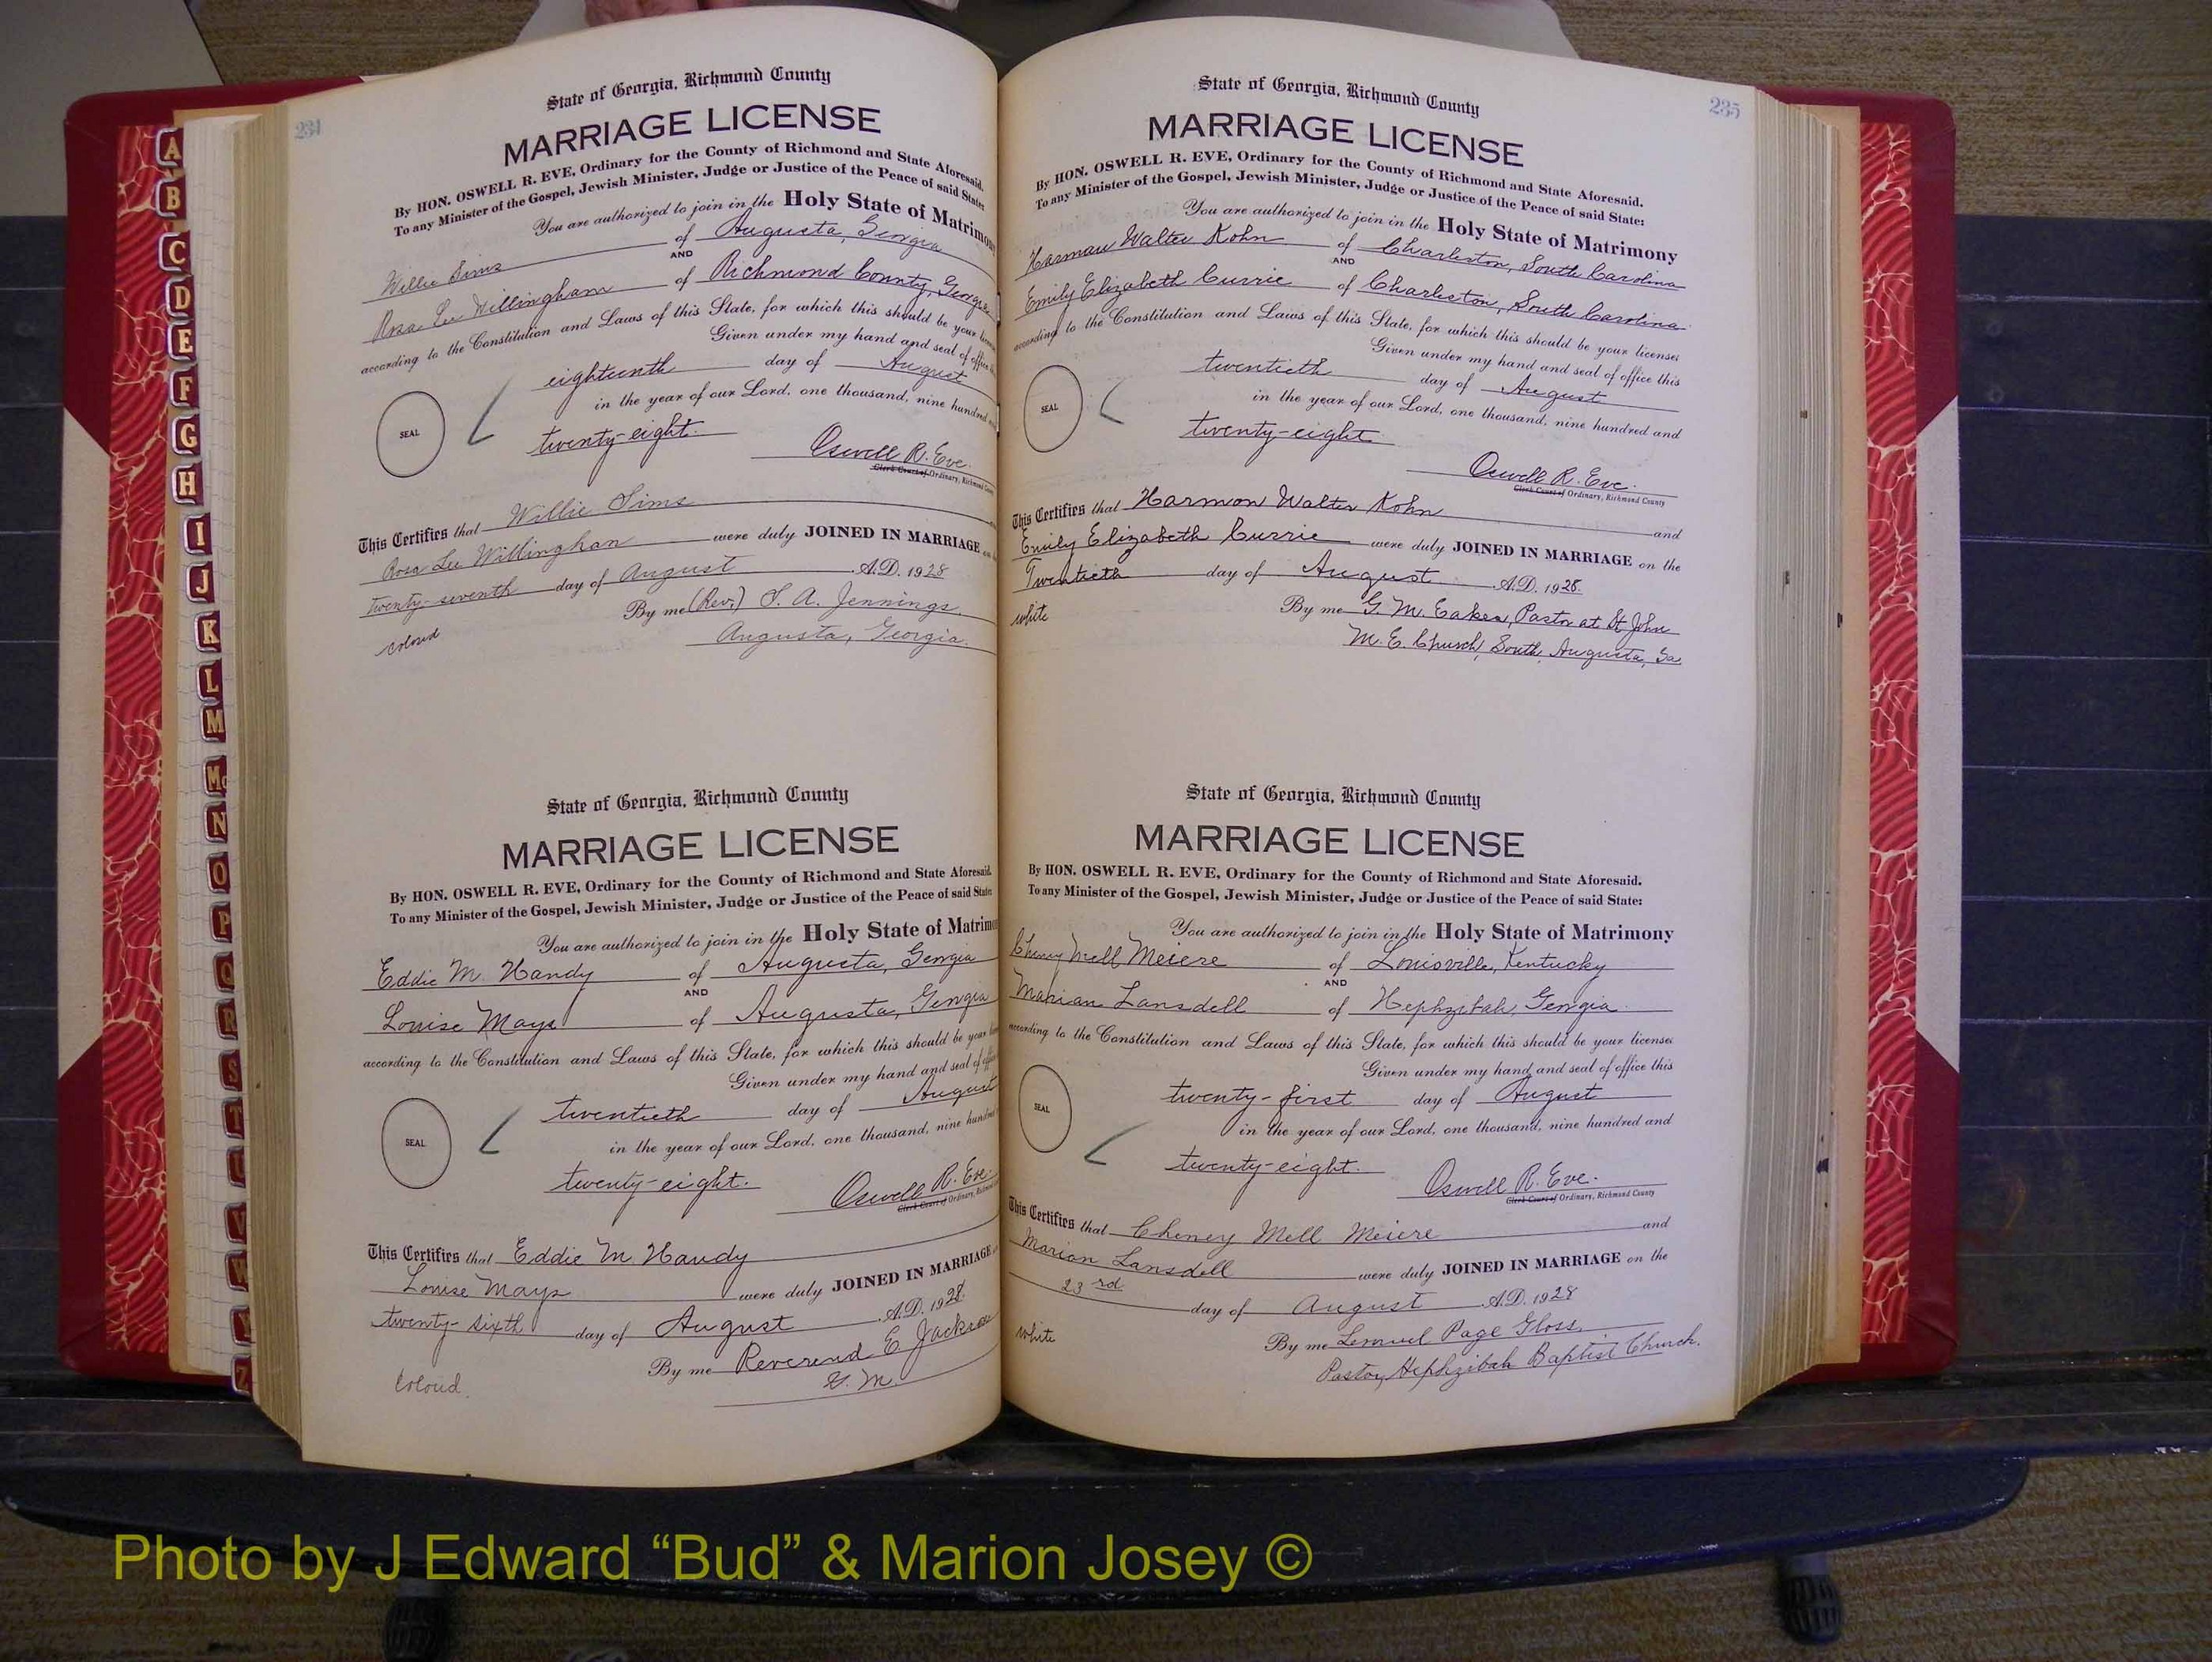 234
State of Georgia, Richmond County
MARRIAGE LICENSE
By HON. OSWELL R. EVE, Ordinary for the County of Richmond and State Aforesaid.
To any Minister of the Gospel, Jewish Minister, Judge or Justice of the Peace of said State:
You are authorized to join in the Holy State of Matrimony
Willie Sims of Augusta, Georgia
AND
Rosa Lee Willingham of Richmond County, Georgia
according to the Constitution and Laws of this State, for which this should be your license
Given under my hand and seal of office
eighteenth day of August
in the year of our Lord, one thousand, nine hundred
SEAL
twenty-eight.
Oswell R. Eve.
Clerk Court of Ordinary, Richmond County
This Certifies that Willie Sims
Rosa Lee Willinghan were duly JOINED IN MARRIAGE on
twenty-seventh day of August A.D. 1928
By me (Rev.) S. A. Jennings
Augusta, Georgia.
colord
State of Georgia, Richmond County
MARRIAGE LICENSE
By HON. OSWELL R. EVE, Ordinary for the County of Richmond and State Aforesaid.
To any Minister of the Gospel, Jewish Minister, Judge or Justice of the Peace of said State:
You are authorized to join in the Holy State of Matrimo
Eddie M. Handy of Augusta, Georgia
AND
Louise Mays of Augusta, Georgia
according to the Constitution and Laws of this State, for which this should be your
Given under my hand and seal of
twentieth day of August
in the year of our Lord, one thousand, nine hundred
SEAL
twenty-eight.
Oswell R. Eve.
Clerk Court of Ordinary, Richmond
This Certifies that Eddie M Handy
Louise Mays were duly JOINED IN MARRIAGE
twenty-sixth day of August A.D. 1928
By me Reverend E Jackson
G. M.
Colord.
235
State of Georgia, Richmond County
MARRIAGE LICENSE
By HON. OSWELL R. EVE, Ordinary for the County of Richmond and State Aforesaid.
To any Minister of the Gospel, Jewish Minister, Judge or Justice of the Peace of said State:
You are authorized to join in the Holy State of Matrimony
Harman Walter Kohn of Charleston, South Carolina
AND
Emily Elizabeth Currie of Charleston, South Carolina
according to the Constitution and Laws of this State, for which this should be your license
Given under my hand and seal of office this
twentieth day of August
in the year of our Lord, one thousand, nine hundred and
SEAL
twenty-eight
Oswell R. Eve.
Clerk Court of Ordinary, Richmond County
This Certifies that Harmon Walter Kohn and
Emily Elizabeth Currie were duly JOINED IN MARRIAGE on the
Twentieth day of August A.D. 1928.
By me G. M. Eakes, Pastor at St John
M. E. Church, South, Augusta, Ga
white
State of Georgia, Richmond County
MARRIAGE LICENSE
By HON. OSWELL R. EVE, Ordinary for the County of Richmond and State Aforesaid.
To any Minister of the Gospel, Jewish Minister, Judge or Justice of the Peace of said State:
You are authorized to join in the Holy State of Matrimony
Cheney Mell Meiere of Louisville, Kentucky
AND
Marian Lansdell of Hephzibah, Georgia.
according to the Constitution and Laws of this State, for which this should be your license
Given under my hand and seal of office this
twenty-first day of August
in the year of our Lord, one thousand, nine hundred and
SEAL
twenty-eight.
Oswell R. Eve.
Clerk Court of Ordinary, Richmond County
This Certifies that Cheney Mell Meiere and
Marion Lansdell were duly JOINED IN MARRIAGE on the
23rd day of August A.D. 1928
By me Lemuel Page Gloss.
Pastor, Hephzibah Baptist Church.
white
A
B
C
D
E
F
G
H
I
J
K
L
M
Mc
N
O
P
Q
R
S
T
U
V
W
Y
Z
Photo by J Edward “Bud” & Marion Josey ©